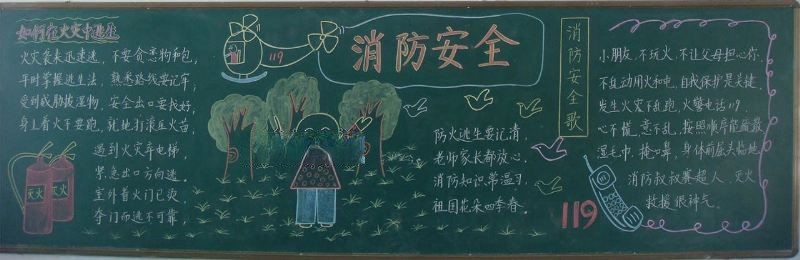 如何在火灾中逃生
火灾袭来迅速逃，不要贪恋物和包，
平时掌握逃生法，熟悉路线要记牢，
受到威胁披湿物，安全出口要找好，
身上着火不要跑，就地打滚压火苗，
遇到火灾弃电梯，
紧急出口方向逃。
室外着火门已烫，
夺门而逃不可靠，
灭火
灭火
119
消防安全
防火逃生要记清
老师家长都放心。
消防知识常温习，
祖国花朵四季春。
消防安全歌
小朋友，不玩火，不让父母担心你，
不乱动用火和电，自我保护是关键，
发生火灾不乱跑，火警电话119，
心不慌，意不乱，按照顺序
湿毛巾，捂口鼻，身体前屈头临地，
消防叔叔赛超人，灭火
救援很神气。
119